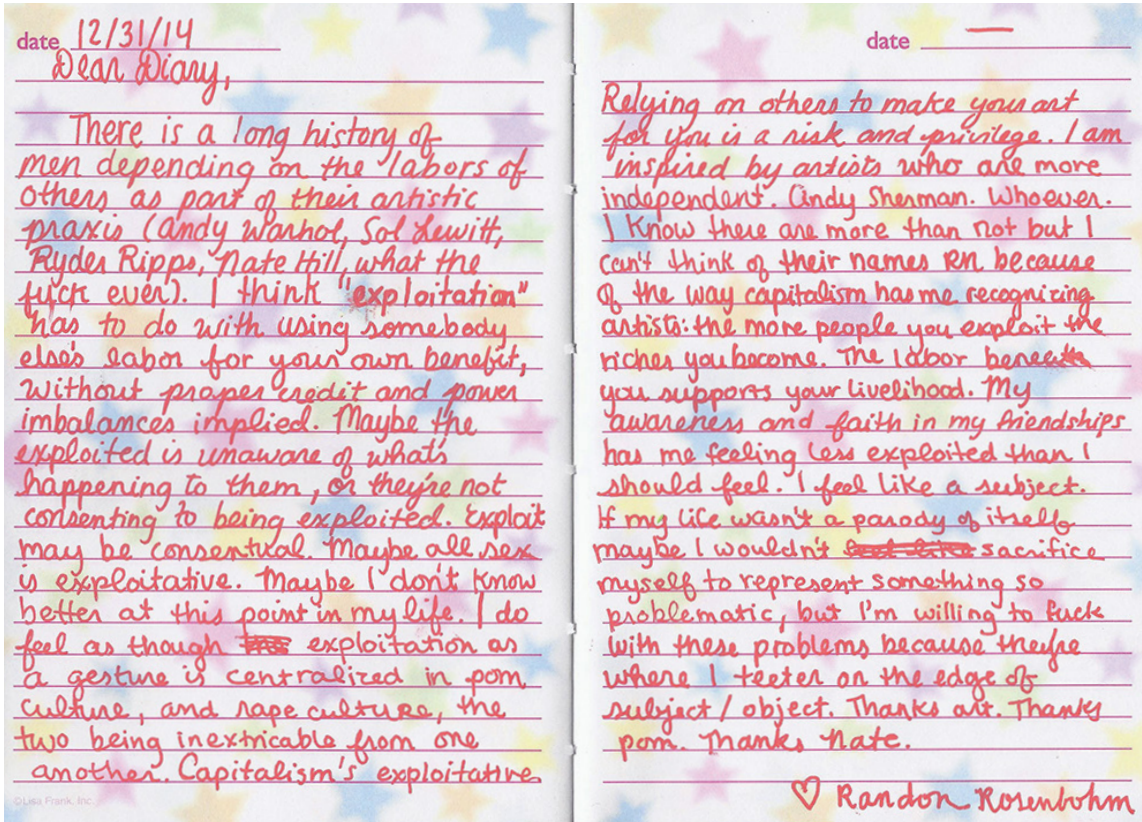 date 12/31/14
Dear Diary,
There is a long history of
men depending on the labors of
others as part of their artistic
praxis (Andy Warhol, Sol Lewitt,
Ryder Ripps, Nate Hill, what the
fuck ever). I think "exploitation"
has to do with using somebody
else's labor for your own benefit,
without proper credit and power
imbalances implied. Maybe the
exploited is unaware of what's
happening to them, or they're not
consenting to being exploited. Exploit
may be consentual. Maybe all sex
is exploitative. Maybe I don't know
better at this point in my life. I do
feel as though exploitation as
a gesture is centralized in porn
culture, and rape culture, the
two being inextricable from one
another. Capitalism's exploitative
©Lisa Frank, Inc.
date —
Relying on others to make your art
for you is a risk and privilege. I am
inspired by artists who are more
independent. Cindy Sherman. Whoever.
I know there are more than not but I
can't think of their names RN because
of the way capitalism has me recognizing
artists: the more people you exploit the
richer you become. The labor beneath
you supports your livelihood. My
awareness and faith in my friendships
has me feeling less exploited than I
should feel. I feel like a subject.
If my life wasn't a parody of itself
maybe I wouldn't sacrifice
myself to represent something so
problematic, but I'm willing to fuck
with these problems because they're
where I teeter on the edge of
subject/object. Thanks art. Thanks
porn. Thanks Nate.
♡ Randon Rosenbohm